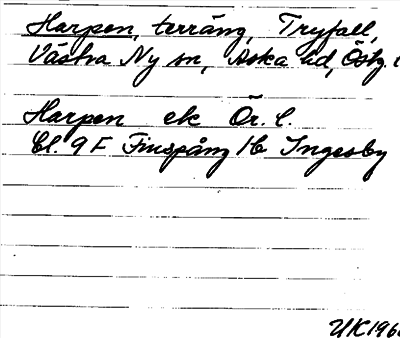 Harpen, terräng, Tryfall,
Västra Ny sn, Aska hd, Östg. l
Harpen ek Ör. l.
Bl. 9 F Finspång H Ingesby
UK 196